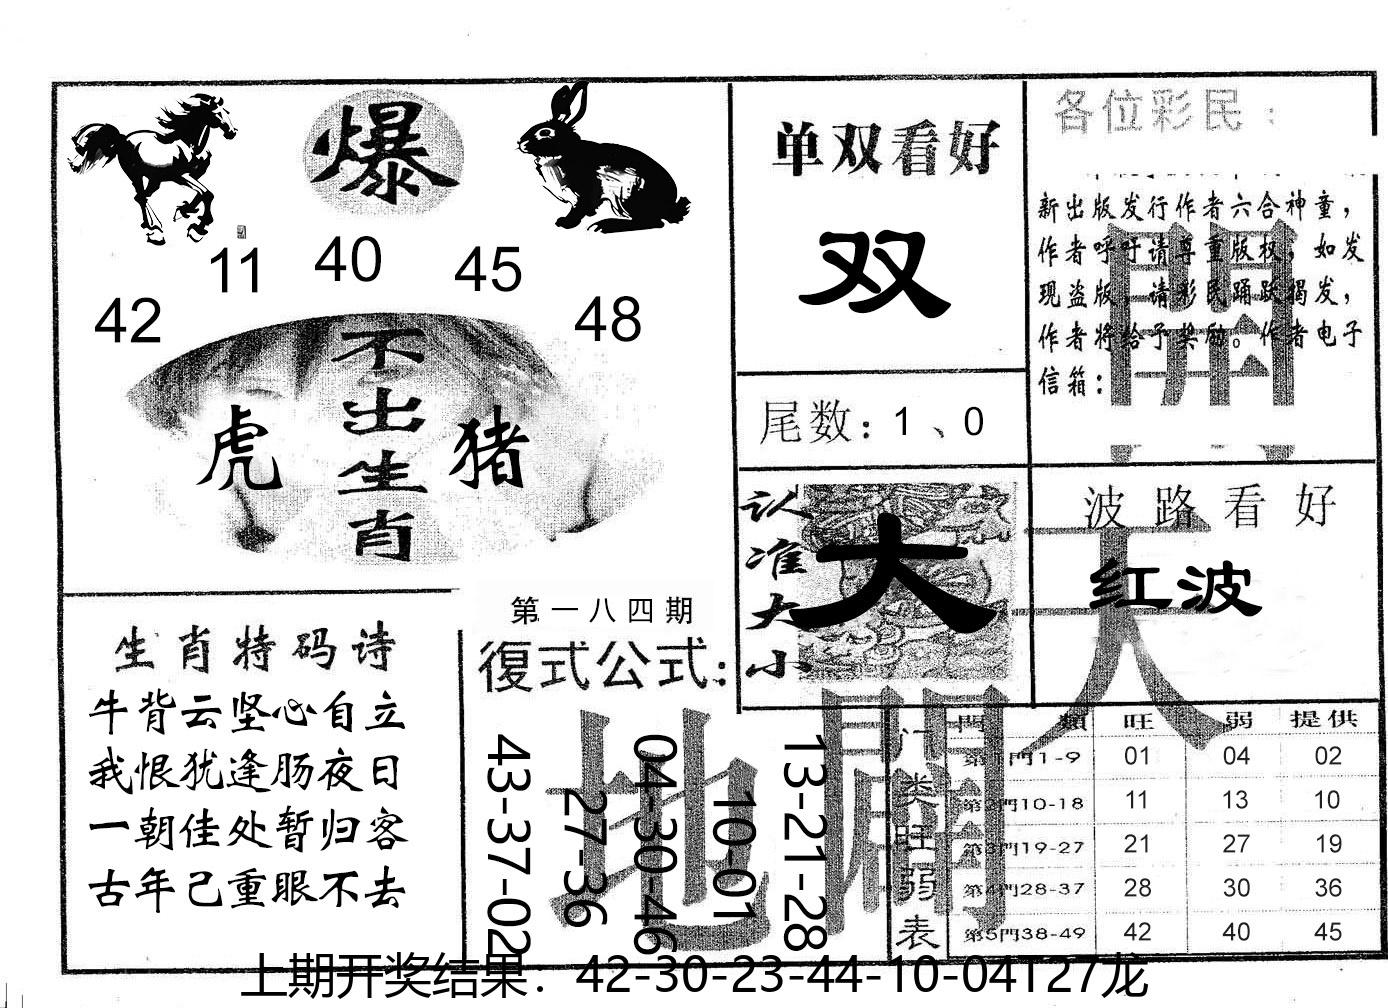 爆
11 40 45
42 48
不出生肖
虎 猪
单双看好
双
尾数：1、0
各位彩民：
新出版发行作者六合神童，
作者呼吁请尊重版权，如发
现盗版，请彩民踊跃揭发，
作者将给予奖励。作者电子
信箱：
開
认准大小
大
波路看好
红波
天
生肖特码诗
牛背云坚心自立
我恨犹逢肠夜日
一朝佳处暂归客
古年己重眼不去
第一八四期
復式公式：
43-37-02
27-36
04-30-46
10-01
13-21-28
地
门类旺弱表
門類 旺 弱 提供
第1門1-9 01 04 02
第2門10-18 11 13 10
第3門19-27 21 27 19
第4門28-37 28 30 36
第5門38-49 42 40 45
上期开奖结果：42-30-23-44-10-04T27龙